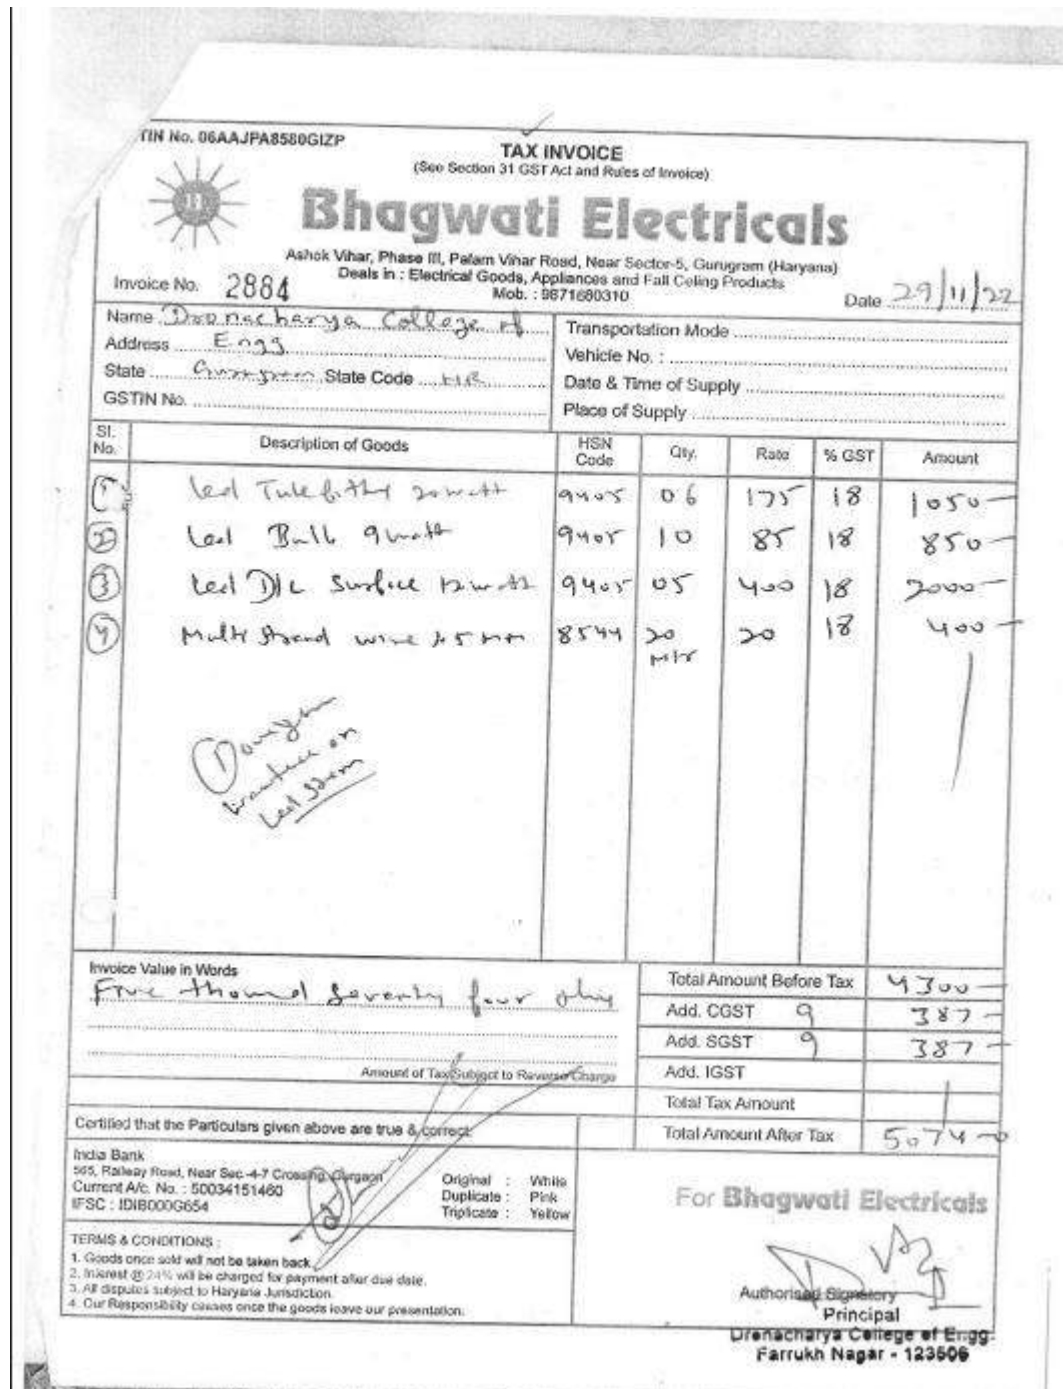 TIN No. 06AAJPA8580GIZP
TAX INVOICE
(See Section 31 GST Act and Rules of Invoice)
Bhagwati Electricals
Ashok Vihar, Phase III, Palam Vihar Road, Near Sector-5, Gurugram (Haryana)
Deals in : Electrical Goods, Appliances and Fall Celing Products
Mob. : 9871680310
Invoice No. 2884
Date 29/11/22
Name Dronacharya College of
Address Engg
State Gurgram State Code HR
GSTIN No.
Transportation Mode
Vehicle No. :
Date & Time of Supply
Place of Supply
Sl. No. Description of Goods HSN Code Qty. Rate % GST Amount
1 Led 20 watt 9405 06 175 18 1050
2 Led Bulb 9 watt 9405 10 85 18 850
3 Led D/L Surface 12 watt 9405 05 400 18 2000
4 Multi Strand wine 8544 20 Mtr 20 18 400
on
Led
Invoice Value in Words
Five thound Seventy four only
Amount of Tax Subject to Reverse Charge
Total Amount Before Tax 4300
Add. CGST 9 387
Add. SGST 9 387
Add. IGST
Total Tax Amount
Total Amount After Tax 5074
Certified that the Particulars given above are true & correct
India Bank
565, Railway Road, Near Sec.-4-7 Crossing, Gurgaon
Current A/c. No. : 50034151460
IFSC : IDIB000G654
Original : White
Duplicate : Pink
Triplicate : Yellow
For Bhagwati Electricals
TERMS & CONDITIONS :
1. Goods once sold will not be taken back.
2. Interest @ 24% will be charged for payment after due date.
3. All disputes subject to Haryana Jurisdiction.
4. Our Responsibility ceases once the goods leave our presentation.
Authorised Signatory
Principal
Dronacharya College of Engg.
Farrukh Nagar - 123506